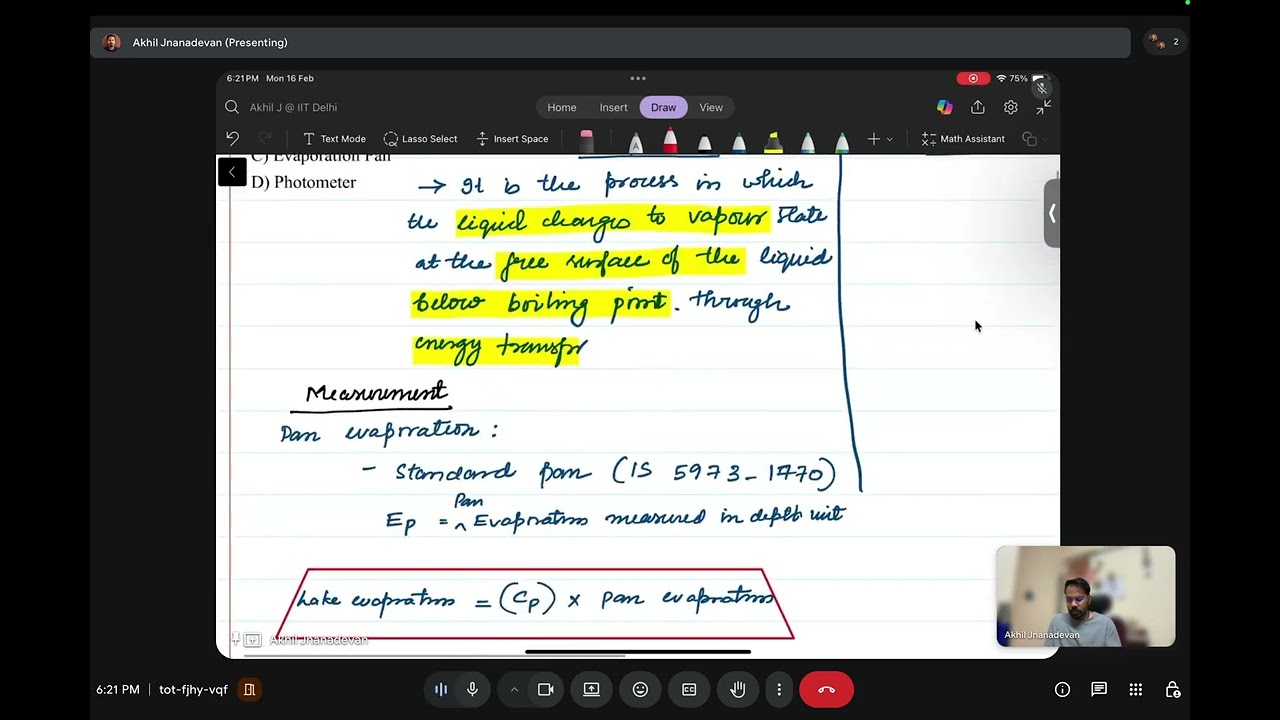 Akhil Jnanadevan (Presenting)
2
6:21 PM Mon 16 Feb
75%
Akhil J @ IIT Delhi
Home Insert Draw View
Text Mode Lasso Select Insert Space Math Assistant
C) Evaporation Pan
D) Photometer
→ It is the process in which
the liquid changes to vapour state
at the free surface of the liquid
below boiling point. through
energy transfr
Measurement
Pan evaporation :
- Standard pan (IS 5973-1970)
Ep = ^ Pan Evaporation measured in depth unit
Lake evaporation = (Cp) × pan evaporation
Akhil Jnanadevan
Akhil Jnanadevan
6:21 PM | tot-fjhy-vqf